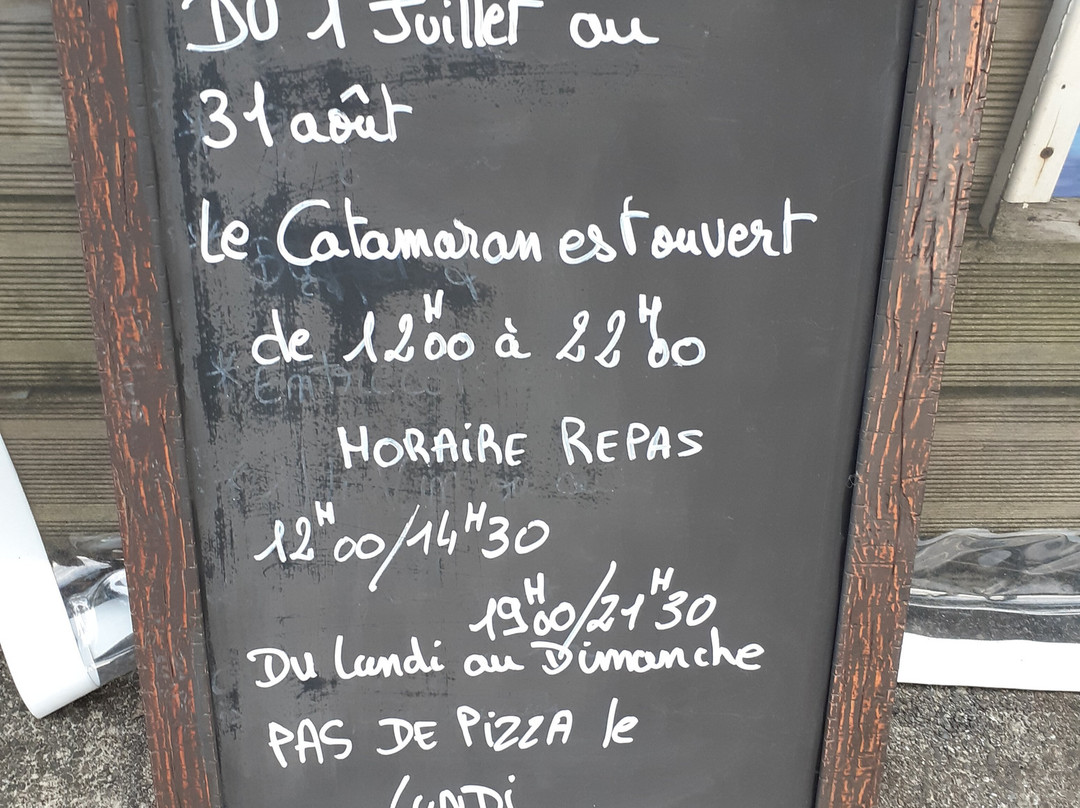 DU 1 Juillet au
31 août
Le Catamaran est ouvert
de 12H00 à 22H00
HORAIRE REPAS
12H00/14H30
19H00/21H30
Du Lundi au Dimanche
PAS DE PIZZA le
LUNDI